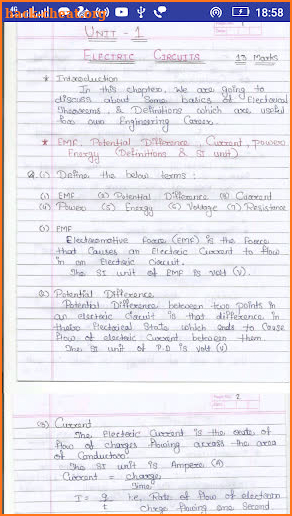 18:58
1
UNIT - 1
ELECTRIC CIRCUITS 13 Marks
* Introduction
In this chapter, we are going to
discuss about some basics of Electrical
Theorems, & Definitions which are useful
for our Engineering Career.
* EMF, Potential Difference, Current, power
Energy (Definitions & SI unit)
Q.(1) Define the below terms:
(1) EMF (2) Potential Difference (3) Current
(4) Power (5) Energy (6) Voltage (7) Resistance
(1) EMF
Electromotive Force (EMF) is the Force
that causes an Electric Current to flow
in an Electric Circuit.
The SI unit of EMF is volt (V).
(2) Potential Difference
Potential Difference between two points in
an electric circuit is that difference in
their Electrical State which ends to cause
flow of electric current between them.
The SI unit of P.D is volt (V)
Page No. 2
Date
(3) Current
The Electric Current is the rate of
flow of charges flowing across the area
of Conductor.
The SI unit is Ampere (A)
Current = charge
Time
I = q i.e. Rate of flow of electron
t charge flowing one second